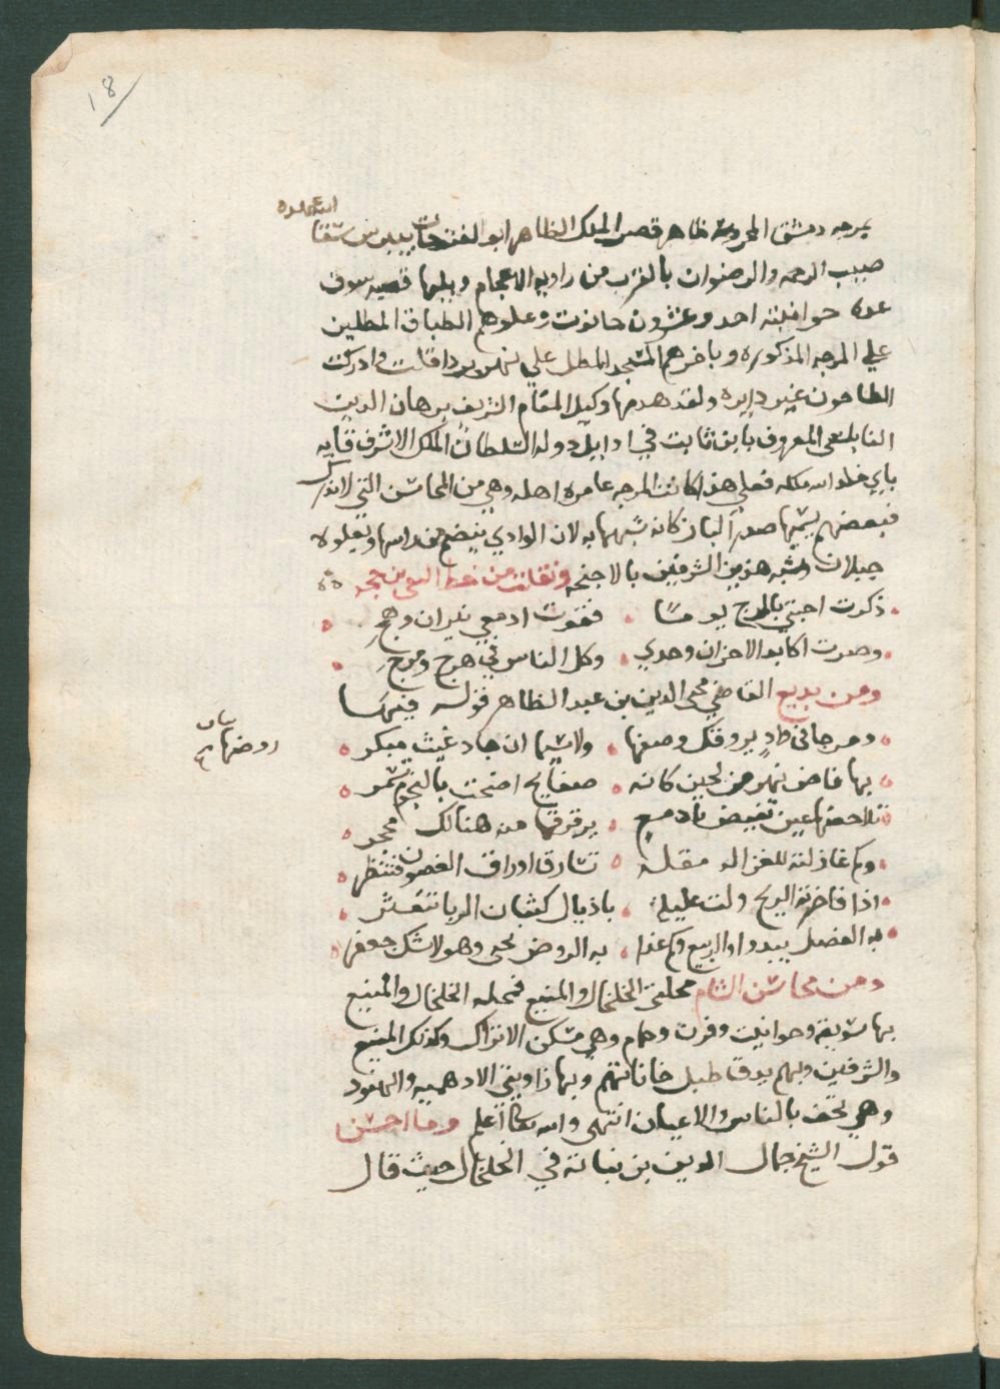 18
بمرجه دمشق المحروسة ظاهر قصر الملك الظاهر ابو الفتوحات بيبرس سقا
صبيب الرحمه والرضوان بالقرب من زاوية الاعجام ويليها قصبه سوق
عدة حوانيته احد وعشرون حانوت وعلوهم الطباق المطلين
علي المرجه المذكوره وباخرهم المسجد المطل علي نهر بردا قلت وادركت
الطاحون غير دايره ولقد هدمها وكيل المقام الشريف برهان الدين
النابلسي المعروف بابن ثابت في اوايل دولة السلطان الملك الاشرف قايه
باي خلد الله ملكه فعلي هذا كانت المرجه عامره اهله وهي من المحاسن التي لا تدرك
فبعضهم يسميها صدر الباز كانه شبهها به لان الوادي ينضم عند راسها ويعلوه
جبلان وشبه هذين الشرفين بالاجنحه ونقلت من خط التقي بن حجه
ذكرت احبتي بالمرج يومًا فقوت ادمعي نيران وهج
وصرت اكابد الاحزان وحدي وكل الناس في هرج ومرج
ومن بديع القاضي محي الدين بن عبد الظاهر قوله فيهما
ومرجة واد يروقك وصفها ولاسيما ان جاد غيث مبكر
روضها
بها فاض نهر من لجين كانه صفايح اضحت بالنجوم تسمر
تلاحظها عين تفيض بادمع يرقرقها من هنالك محجر
وكم غازلته للغزاله مقلة تسارق اوراق الغصون فتنظر
اذا فاخرته الريح ولت عليلة باذيال كثبان الربا تتعثر
به الفضل يبدو والربيع وكم غدا به الروض يحيى وهو لاشك جعفر
ومن محاسن الشام محلتي الخلخال والمنيع فمحلة الخلخال والمنيع
بها سويقة وحوانيت وفرن وحمام وهي مسكن الاتراك وكذلك المنيع
والشرفين وبهم يدق طبل خاناتهم وبها زاويتي الادهميه والهنود
وهي تحف بالناس والاعيان انتهى والله تعالى اعلم وما احسن
قول الشيخ جمال الدين بن نباتة في الخلخال حيث قال